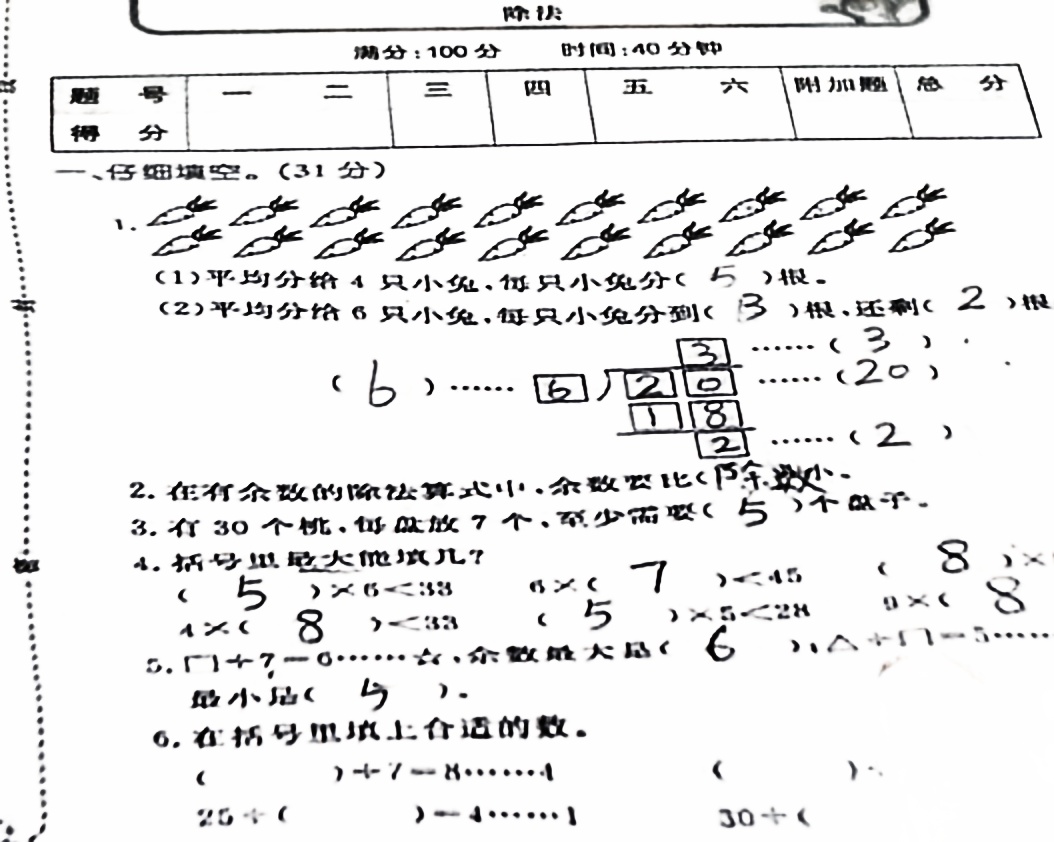 除法
满分:100分 时间:40分钟
题号 一 二 三 四 五 六 附加题 总分
得分
一、仔细填空。(31分)
1.
(1)平均分给4只小兔,每只小兔分( 5 )根。
(2)平均分给6只小兔,每只小兔分到( 3 )根,还剩( 2 )根
3 ……( 3 )
( 6 )…… 6 ) 2 0 ……( 20 )
1 8
2 ……( 2 )
2. 在有余数的除法算式中,余数要比(除数小。
3. 有30个桃,每盘放7个,至少需要( 5 )个盘子。
4. 括号里最大能填几?
( 5 )×6<33 6×( 7 )<45 ( 8 )×
4×( 8 )<33 ( 5 )×5<28 9×( 8
5. □÷7=6……☆,余数最大是( 6 ),△÷□=5……
最小是( 5 )。
6. 在括号里填上合适的数。
( )÷7=8……4 ( )
25÷( )=4……1 30÷(